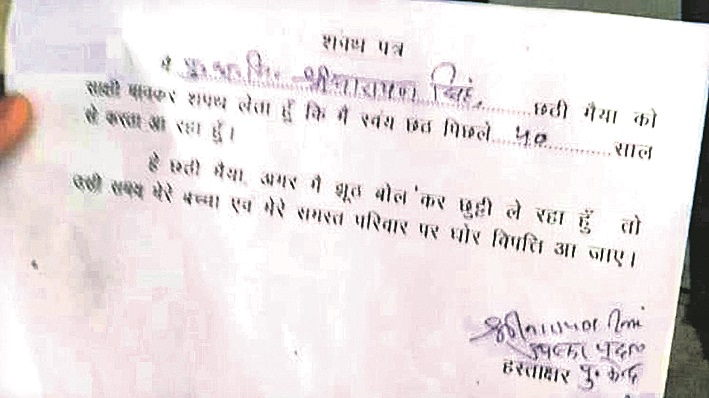 शपथ पत्र
मै पु०अ०नि० श्रीनारायण सिंह, छठी मैया को
साक्षी मानकर शपथ लेता हूँ कि मै स्वंय छठ पिछले ५० साल
से करता आ रहा हूँ।
हे छठी मैया, अगर मै झूठ बोल कर छुट्टी ले रहा हूँ तो
उसी समय मेरे बच्चा एव मेरे समस्त परिवार पर घोर विपत्ति आ जाए।
श्रीनारायण सिंह
हस्ताक्षर पु० केन्द्र